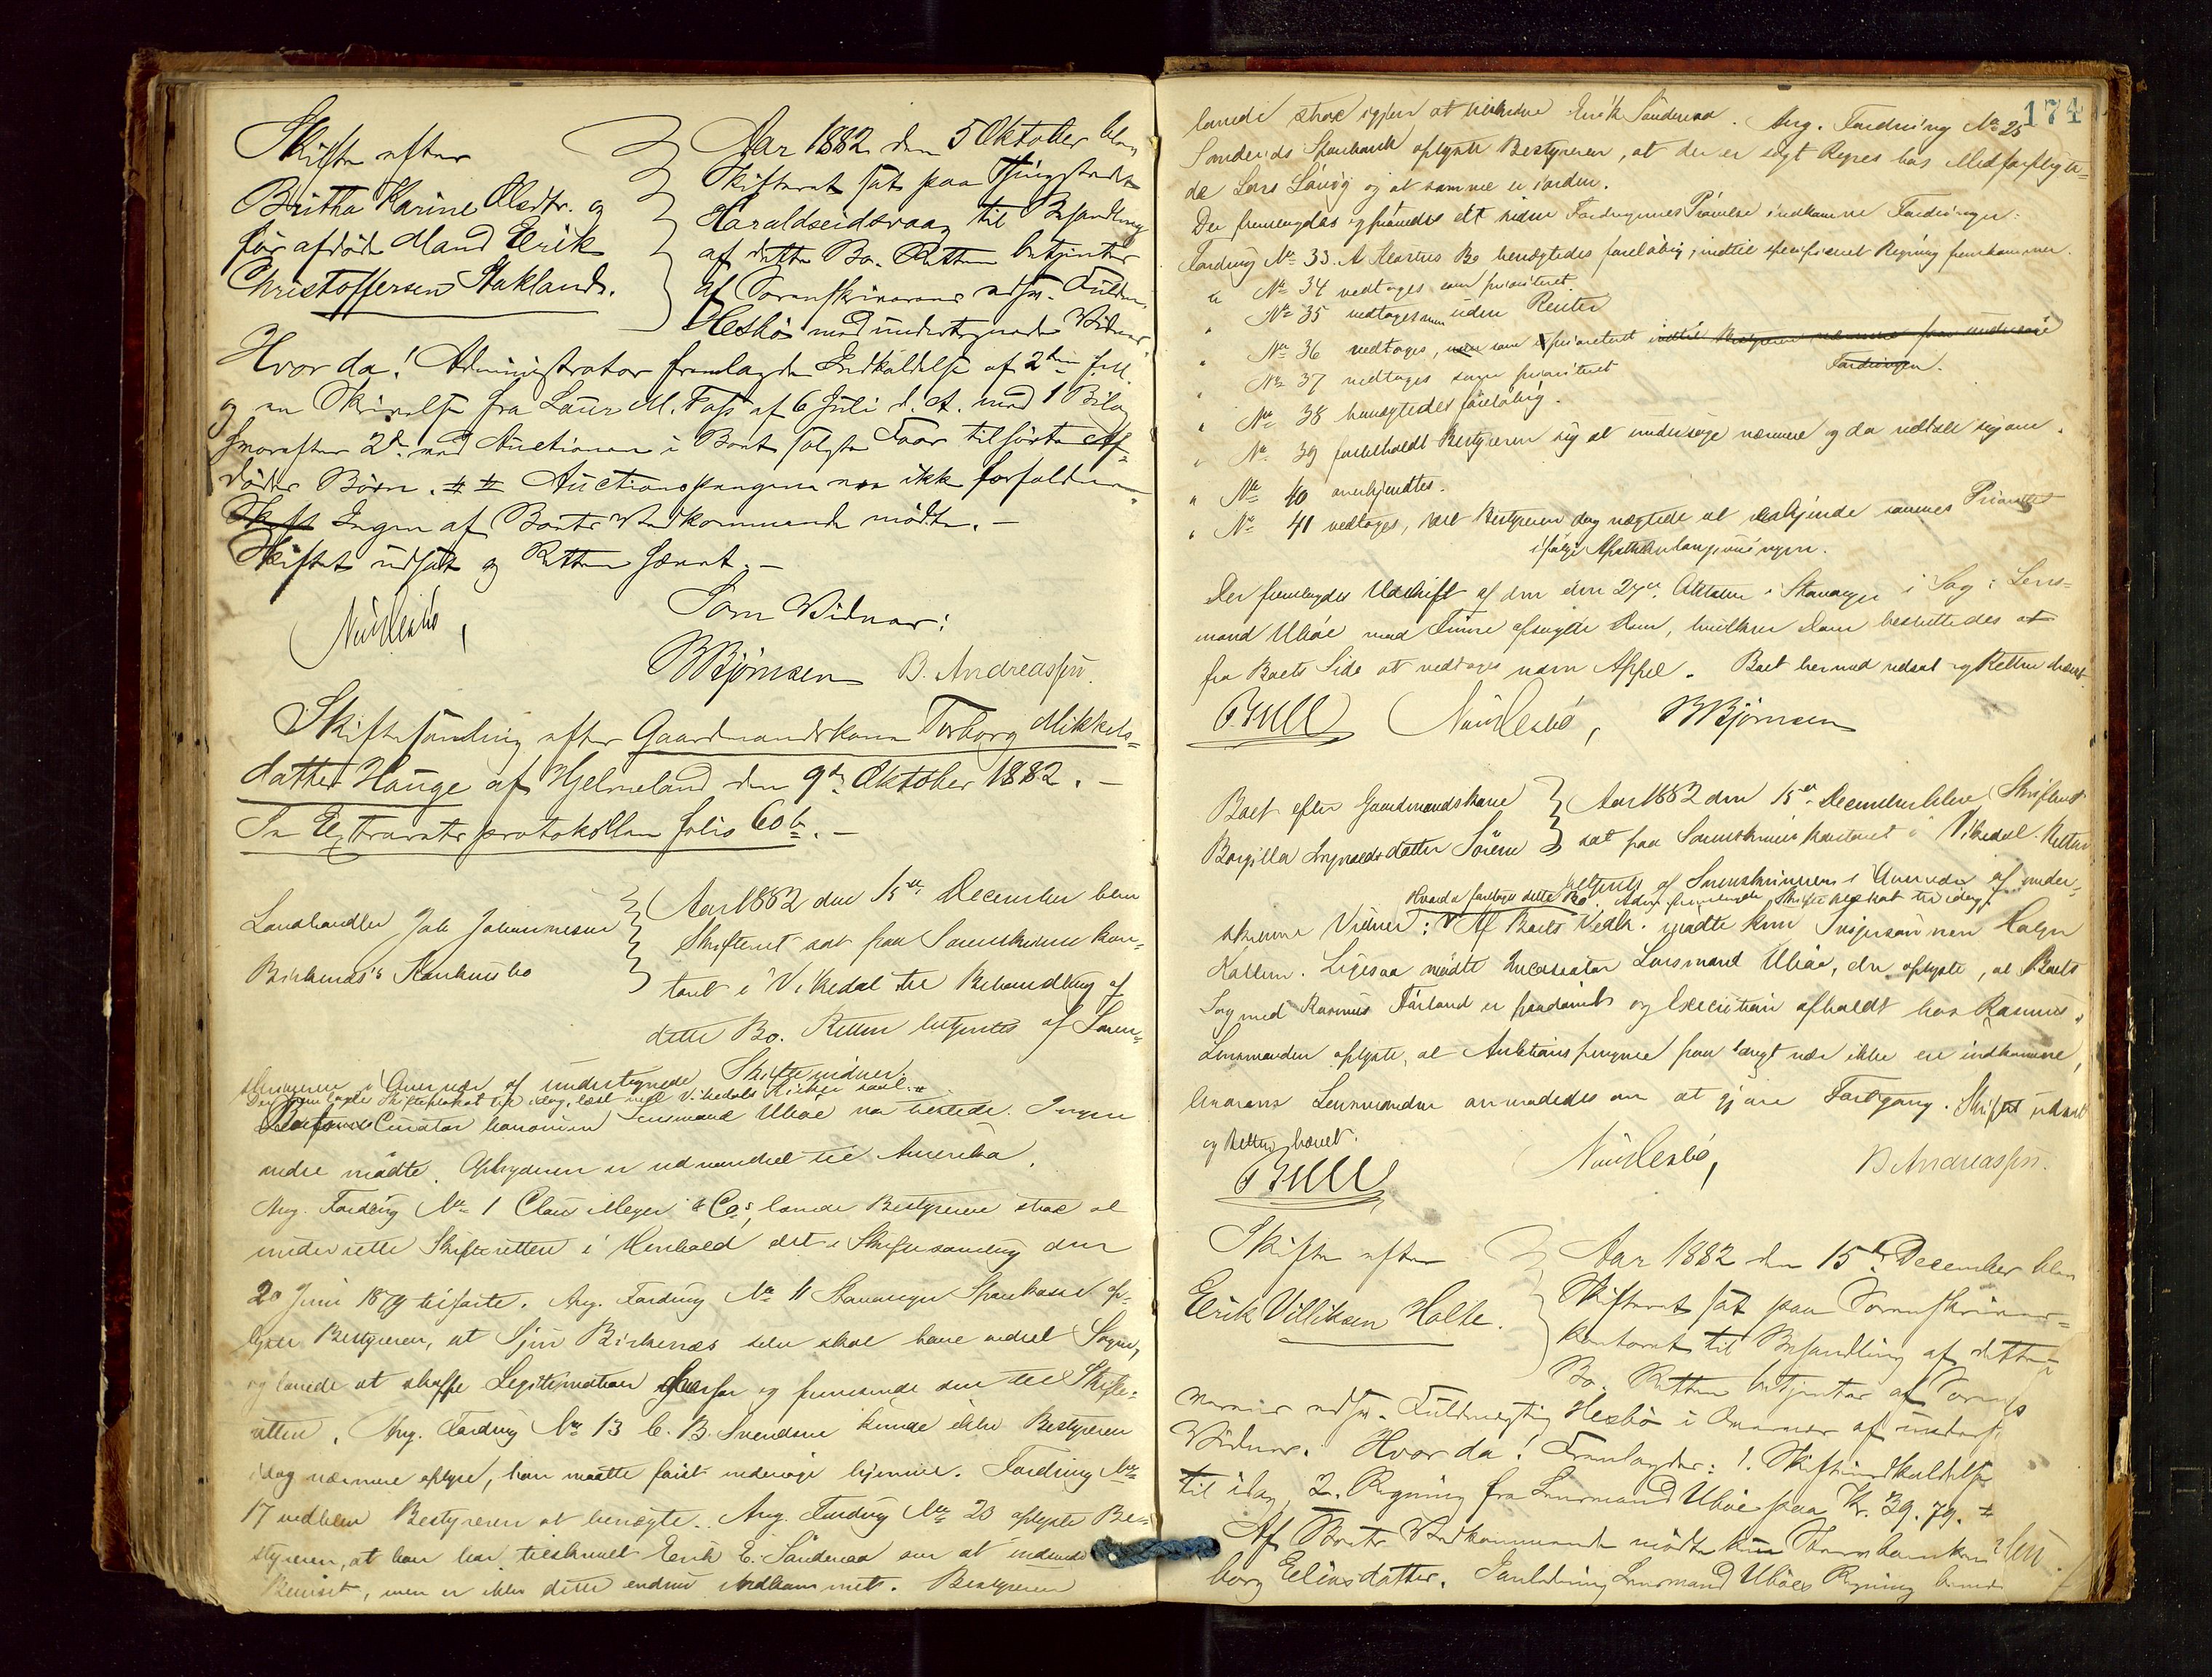 Skifte efter
Britha Karine Olsdtr. og
før afdøde Mand Erik
Christoffersen Stakland.
Aar 1882 den 5 Oktober blev
Skifteret sat paa Thingstedet
Haraldseidsvaag til Behandling
af dette Bo. Retten betjentes
af Sorenskriveren ved Fuldm.
Hesbö med undertegnede Vidner
Hvor da! Administrator fremlagde Indkaldelse af 2den
og en Skrivelse fra Laur M. Foss af 6 Juli d. A. med 1 Bilag
hvorefter 2de ved Auctionen i Boet solgte Faar tilhörte Af-
dödes Börn. Auctionspengene var ikke forfaldne.
Ingen af Boets Vedkommende mödte. —
Skiftet udsat og Retten hævet. —
Som Vidner:
BBjörnsen B. Andreassen.
Skiftesamling efter Gaardmandskone Torborg Mikkels-
datter Hauge af Hjelmeland den 9de Oktober 1882. —
Se Extraretsprotokollen folio 60b. —
Landhandler Job Johannesen
Birkenæs's Konkursbo
Aar 1882 den 15de December blev
Skifteret sat paa Sorenskriverkon-
toret i Vikedal til Behandling af
dette Bo. Retten betjentes af Soren-
skriveren i Overvær af undertegnede Skiftevidner.
Der fremlagdes Skifteplakat til idag, læst ved Vikedals Kirke
Curator bonorum Lensmand Uböe var tilstede. Ingen
andre mødte. Opbyderen er udvandret til Amerika.
Ang. Fordring No 1 Clau Meyer & Co's, lovede Bestyreren strax at
underrette Skifteretten i Henhold det i Skiftesamling den
20 Juni 1879 tilførte. Ang. Fordring No 11 Stavanger Sparkasse op-
lyste Bestyreren, at Sjur Birkenæs selv skal have Sagen,
og lovede at skaffe Legitimation derfor og fremsende den til Skifte-
retten. Ang. Fordring No 13 C. B. Svendsen kunde ikke Bestyreren
idag nærmere oplyse, han maatte først undersøge hjemme. Fordring No
17 vedblev Bestyreren at benægte. Ang. Fordring No 20 oplyste Be-
styreren, at han har tilskrevet Erik E. Sandenaa om at indsende
Beviset, men er ikke dette endnu indkommet. Bestyreren
174
lovede strax igjen at tilskrive Erik Sandenaa. Ang. Fordring No 25
Sandeids Sparebank oplyste Bestyreren, at der er søgt Regres hos Medforpligte-
de Lars og at samme er iorden.
Der fremlagdes og prøvedes det siden Fordringernes Prøvelse indkomne Fordringer:
Fordring No 33. A Bo benægtedes foreløbig, indtil specificeret Regning fremkommer.
" No 34 vedtages som prioriteret.
" No 35 vedtages uden Renter
" No 36 vedtages, som prioriteret
Fordringen.
" No 37 vedtages som prioriteret
" No 38 benægtedes foreløbig.
" No 39 forbeholdt Bestyreren sig at undersøge nærmere og da udtale sig om.
" No 40 anerkjendtes.
" No 41 vedtages, Bestyreren dog nægtede at anerkjende sammes Prioritet
ifølge
Der fremlagdes Udskrift af den den 27de Oktober i Stavanger i Sag: Lens-
mand Uböe mod afsagte Dom, hvilken Dom besluttedes
fra Boets Side at vedtages uden Appel. Boet hermed udsat og Retten hævet.
BBjörnsen
Boet efter Gaardmandskone
Borgilla
Aar 1882 den 15de December blev Skifteret
sat paa Sorenskriverkontoret i Vikedal. Retten
betjent af Sorenskriveren i Overvær af under-
Hvorda foretages dette Bo. fremlagde Skifteplakat til idag.
skrevne Vidner: Af Boets Vedk. mødte kun
Ligesaa mødte Incassator Lensmand Uböe, der oplyste, at Boets
Sag med Rasmus er paadømt og Execution afholdt hos Rasmus.
Lensmanden oplyste, at Auktionspengene paa langt nær ikke ere indkomne,
hvorom Lensmanden anmodedes om at gjøre Fortgang. Skiftet udsat
og Retten hævet.
B Andreassen.
Skifte efter
Eirik Villiksen Holte.
Aar 1882 den 15de December blev
Skifteret sat paa Sorenskriver-
kontoret til Behandling af dette
Bo. Retten betjentes af Soren
ved Fuldmægtig Hesbö i Overvær af
Vidner. Hvor da! Fremlagdes: 1. Skifteindkaldelse
til idag 2. Regning fra Lensmand Uböe paa Kr. 39.79.
Af Boets Vedkommende mödte kun
borg Eeliasdatter. Lensmand Uböes Regning